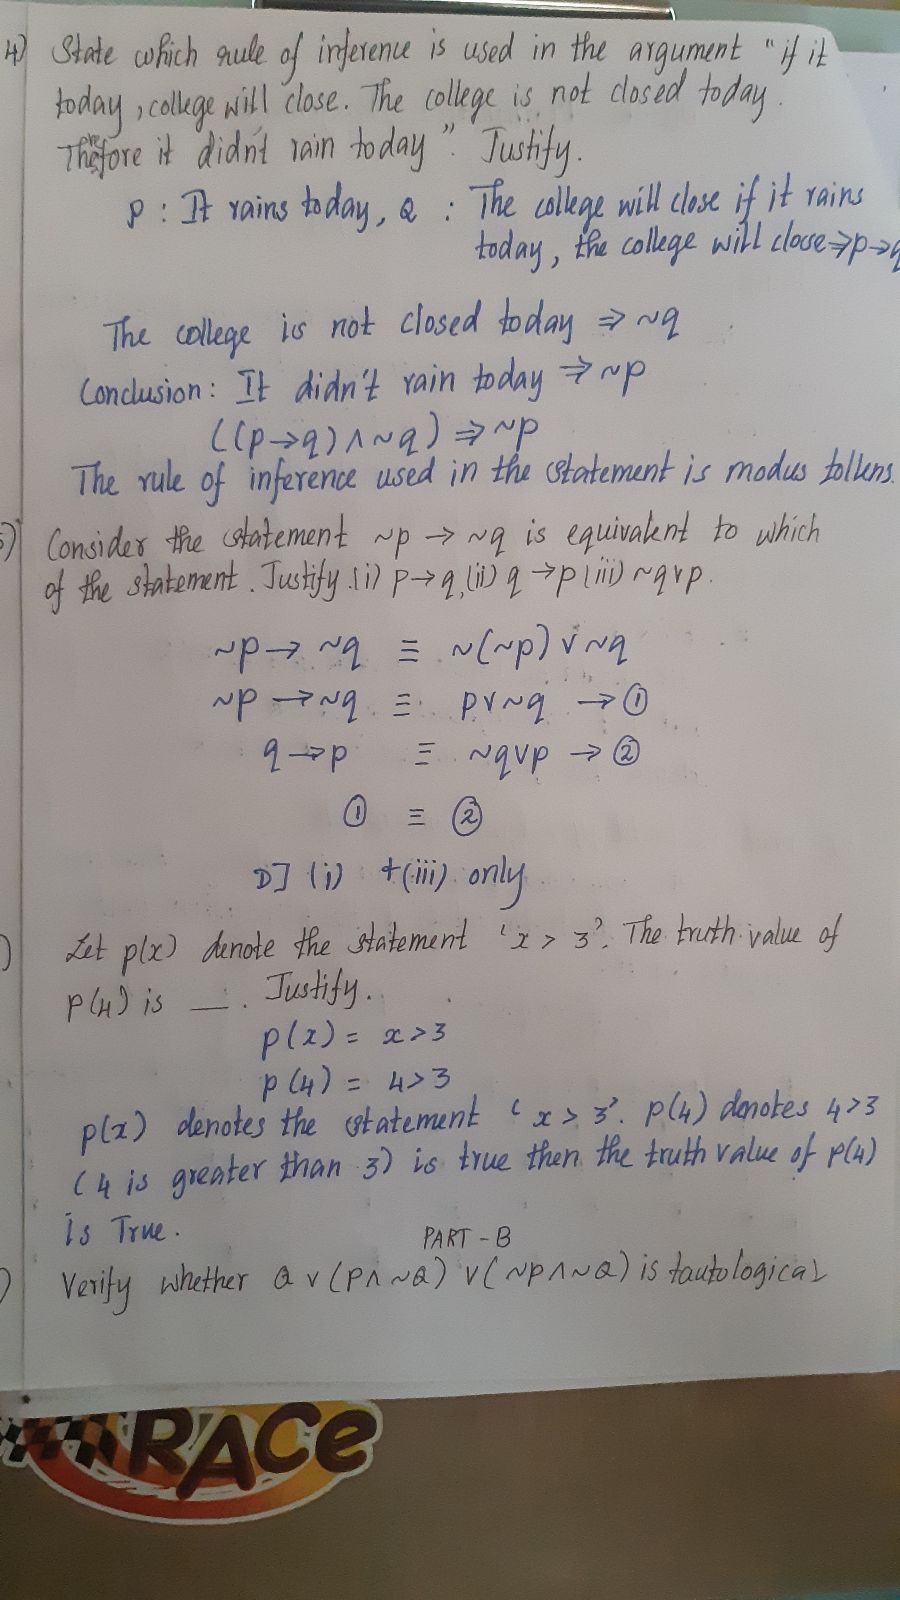 4) State which rule of inference is used in the argument "if it
today, college will close. The college is not closed today.
Therefore it didn't rain today". Justify.
P : It rains today, Q : The college will close if it rains
today, the college will close ⇒ p→q
The college is not closed today ⇒ ~q
Conclusion: It didn't rain today ⇒ ~p
((p→q) ∧ ~q) ⇒ ~p
The rule of inference used in the statement is modus tollens.
5) Consider the statement ~p → ~q is equivalent to which
of the statement. Justify. (i) p→q, (ii) q→p (iii) ~q∨p.
~p → ~q ≡ ~(~p) ∨ ~q
~p → ~q ≡ p∨~q → ①
q→p ≡ ~q∨p → ②
① ≡ ②
D] (i) +(iii) only
) Let p(x) denote the statement 'x > 3'. The truth value of
P(4) is __. Justify.
p(x) = x>3
p(4) = 4>3
p(x) denotes the statement 'x > 3'. p(4) denotes 4>3
(4 is greater than 3) is true then the truth value of p(4)
is True.
PART - B
) Verify whether Q ∨ (P∧~Q) ∨ (~P∧~Q) is tautological
RACe